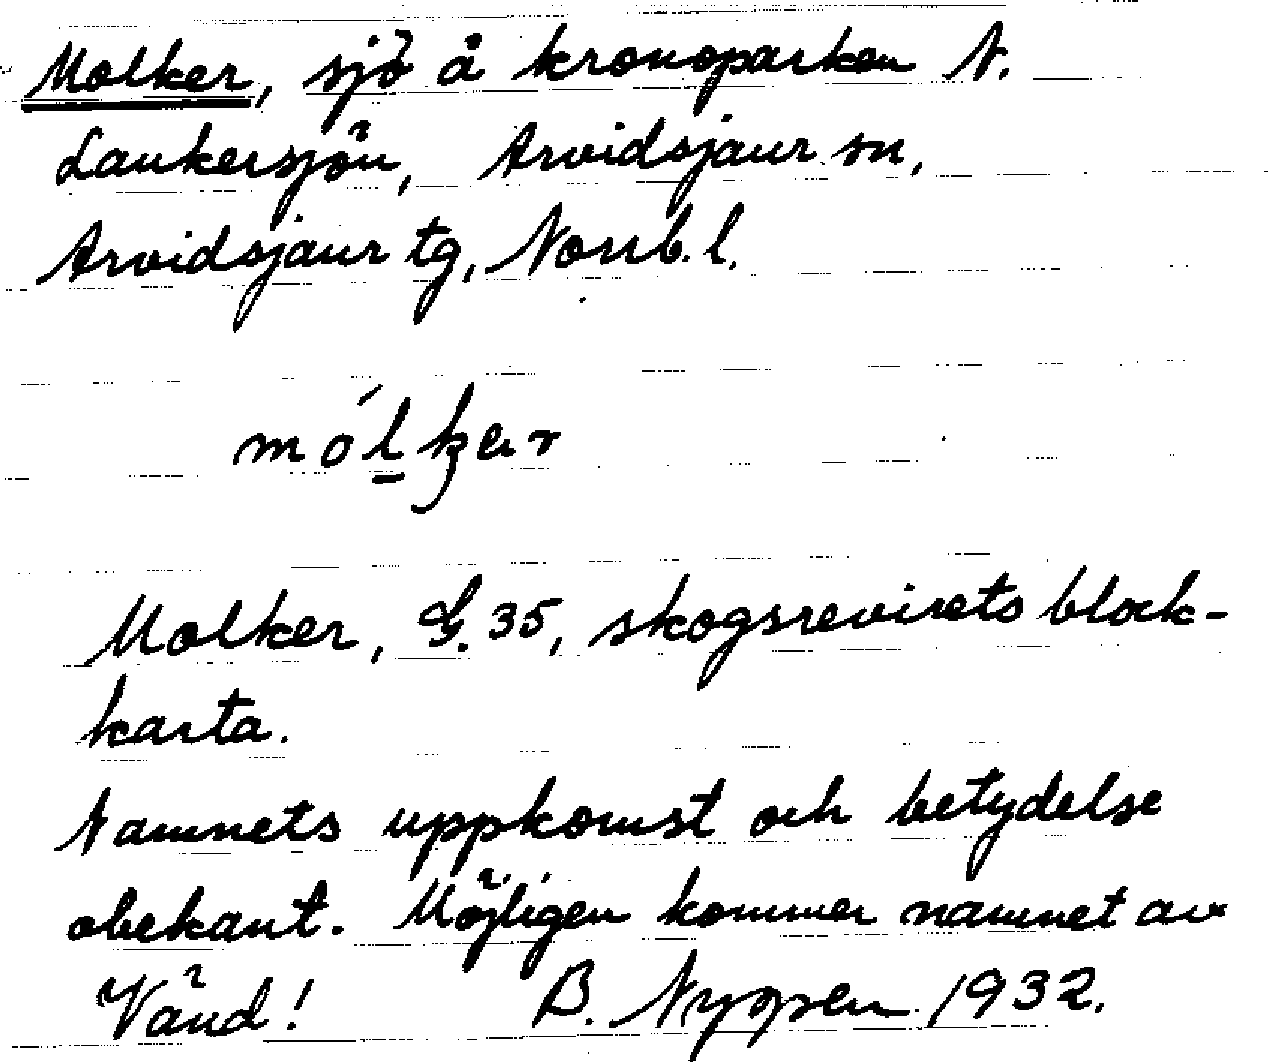 Molker, sjö å kronoparken N.
Laukersjön, Arvidsjaur sn,
Arvidsjaur tg, Norrb. l.
Molker, G. 35, skogsrevirets block-
karta.
Namnets uppkomst och betydelse
obekant. Möjligen kommer namnet av
Vänd! B. Nyppen 1932.